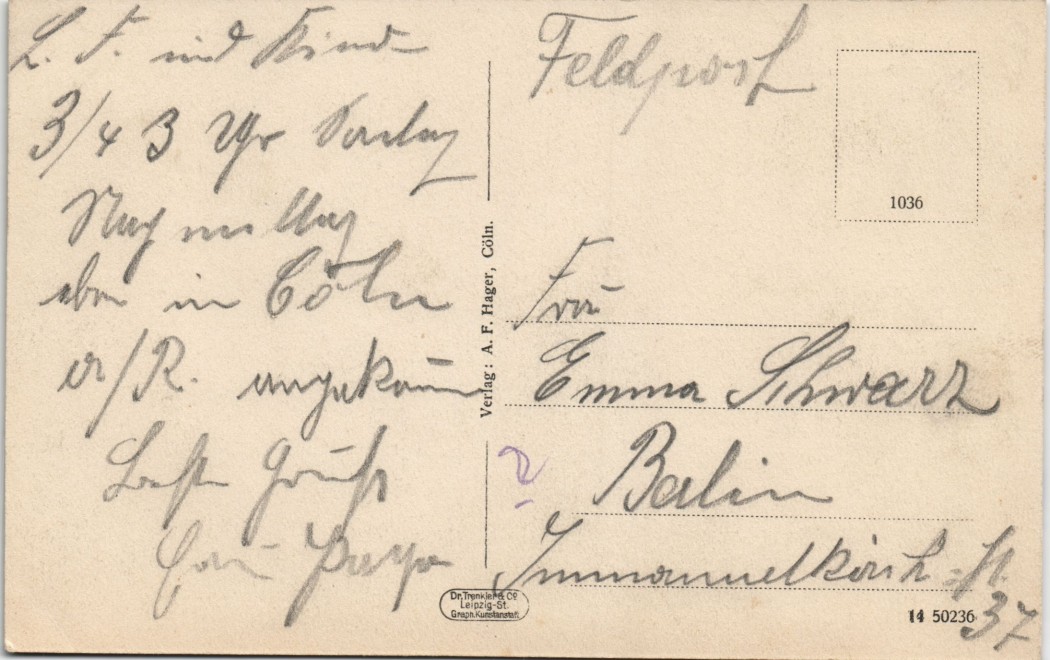 L. F. und Kind
3/4 3 Uhr
Nachmittag
eben in Cöln
a/R. angekom̅
Beste Grüße
Papa
Feldpost
1036
Frau
Emma Schwarz
Berlin
Immanuelkirch-St.
37
Verlag: A. F. Hager, Cöln.
Dr. Trenkler & Co
Leipzig-St.
Graph. Kunstanstalt
14 50236